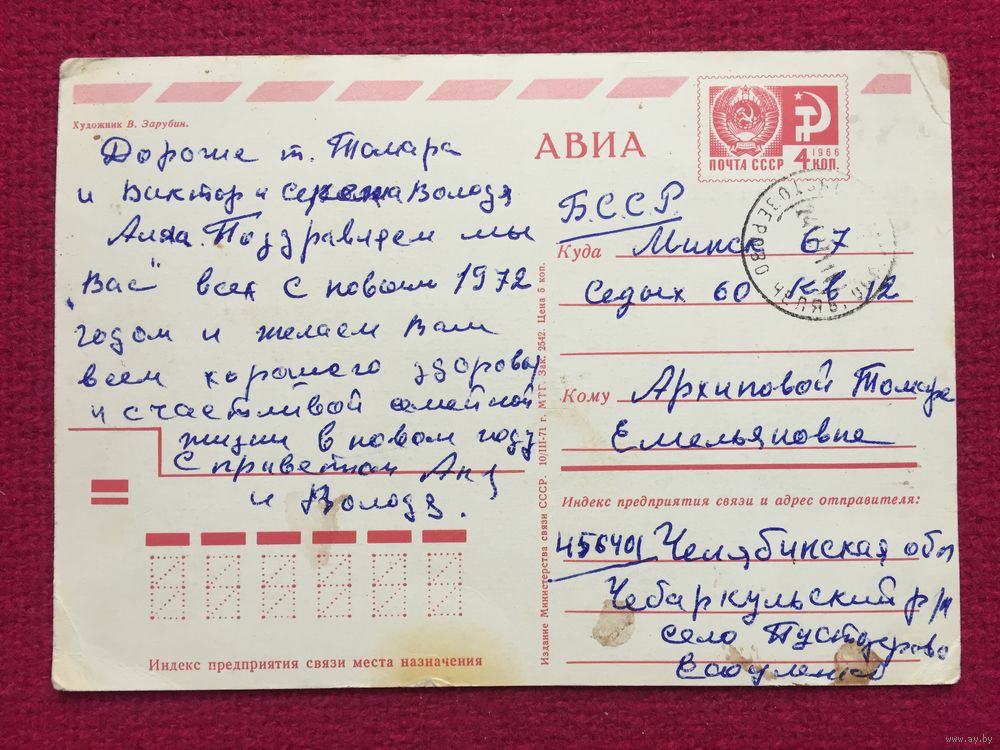 Художник В. Зарубин.
Дорогие т. Тамара
и Виктор и Володя
Алла. Поздравляем мы
"Вас" всех с новым 1972
годом и желаем Вам
всем хорошего здоровья
и счастливой семейной
жизни в новом году
С приветом Аня
и Володя.
Индекс предприятия связи места назначения
Издание Министерства связи СССР. 10/III-71 г. МТГ. Зак. 2542. Цена 5 коп.
АВИА
ПОЧТА СССР 4 КОП.
1966
Б.С.С.Р
Куда Минск 67
Седых 60 кв 12
Кому Архиповой Тамаре
Емельяновне
Индекс предприятия связи и адрес отправителя:
456401 Челябинская обл
Чебаркульский р/н
село Пустозерово
www.ay.by